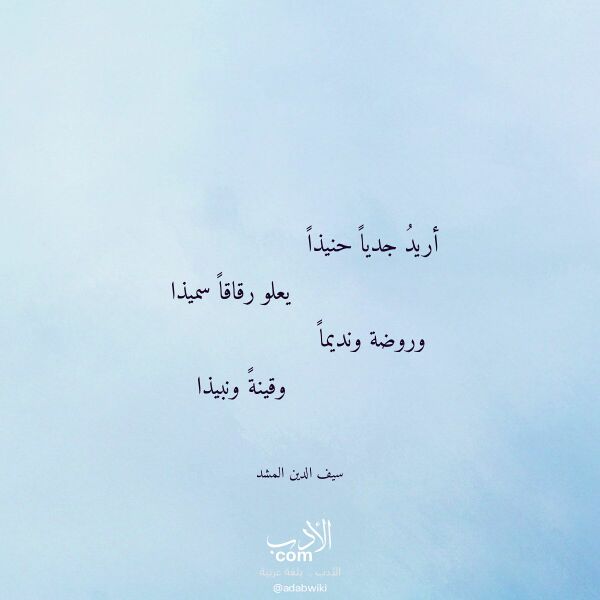 أريدُ جدياً حنيذاً
يعلو رقاقاً سميذا
وروضة ونديماً
وقينةً ونبيذا
سيف الدين المشد
الأدب
com
الأدب .. بلغة عربية
@adabwiki